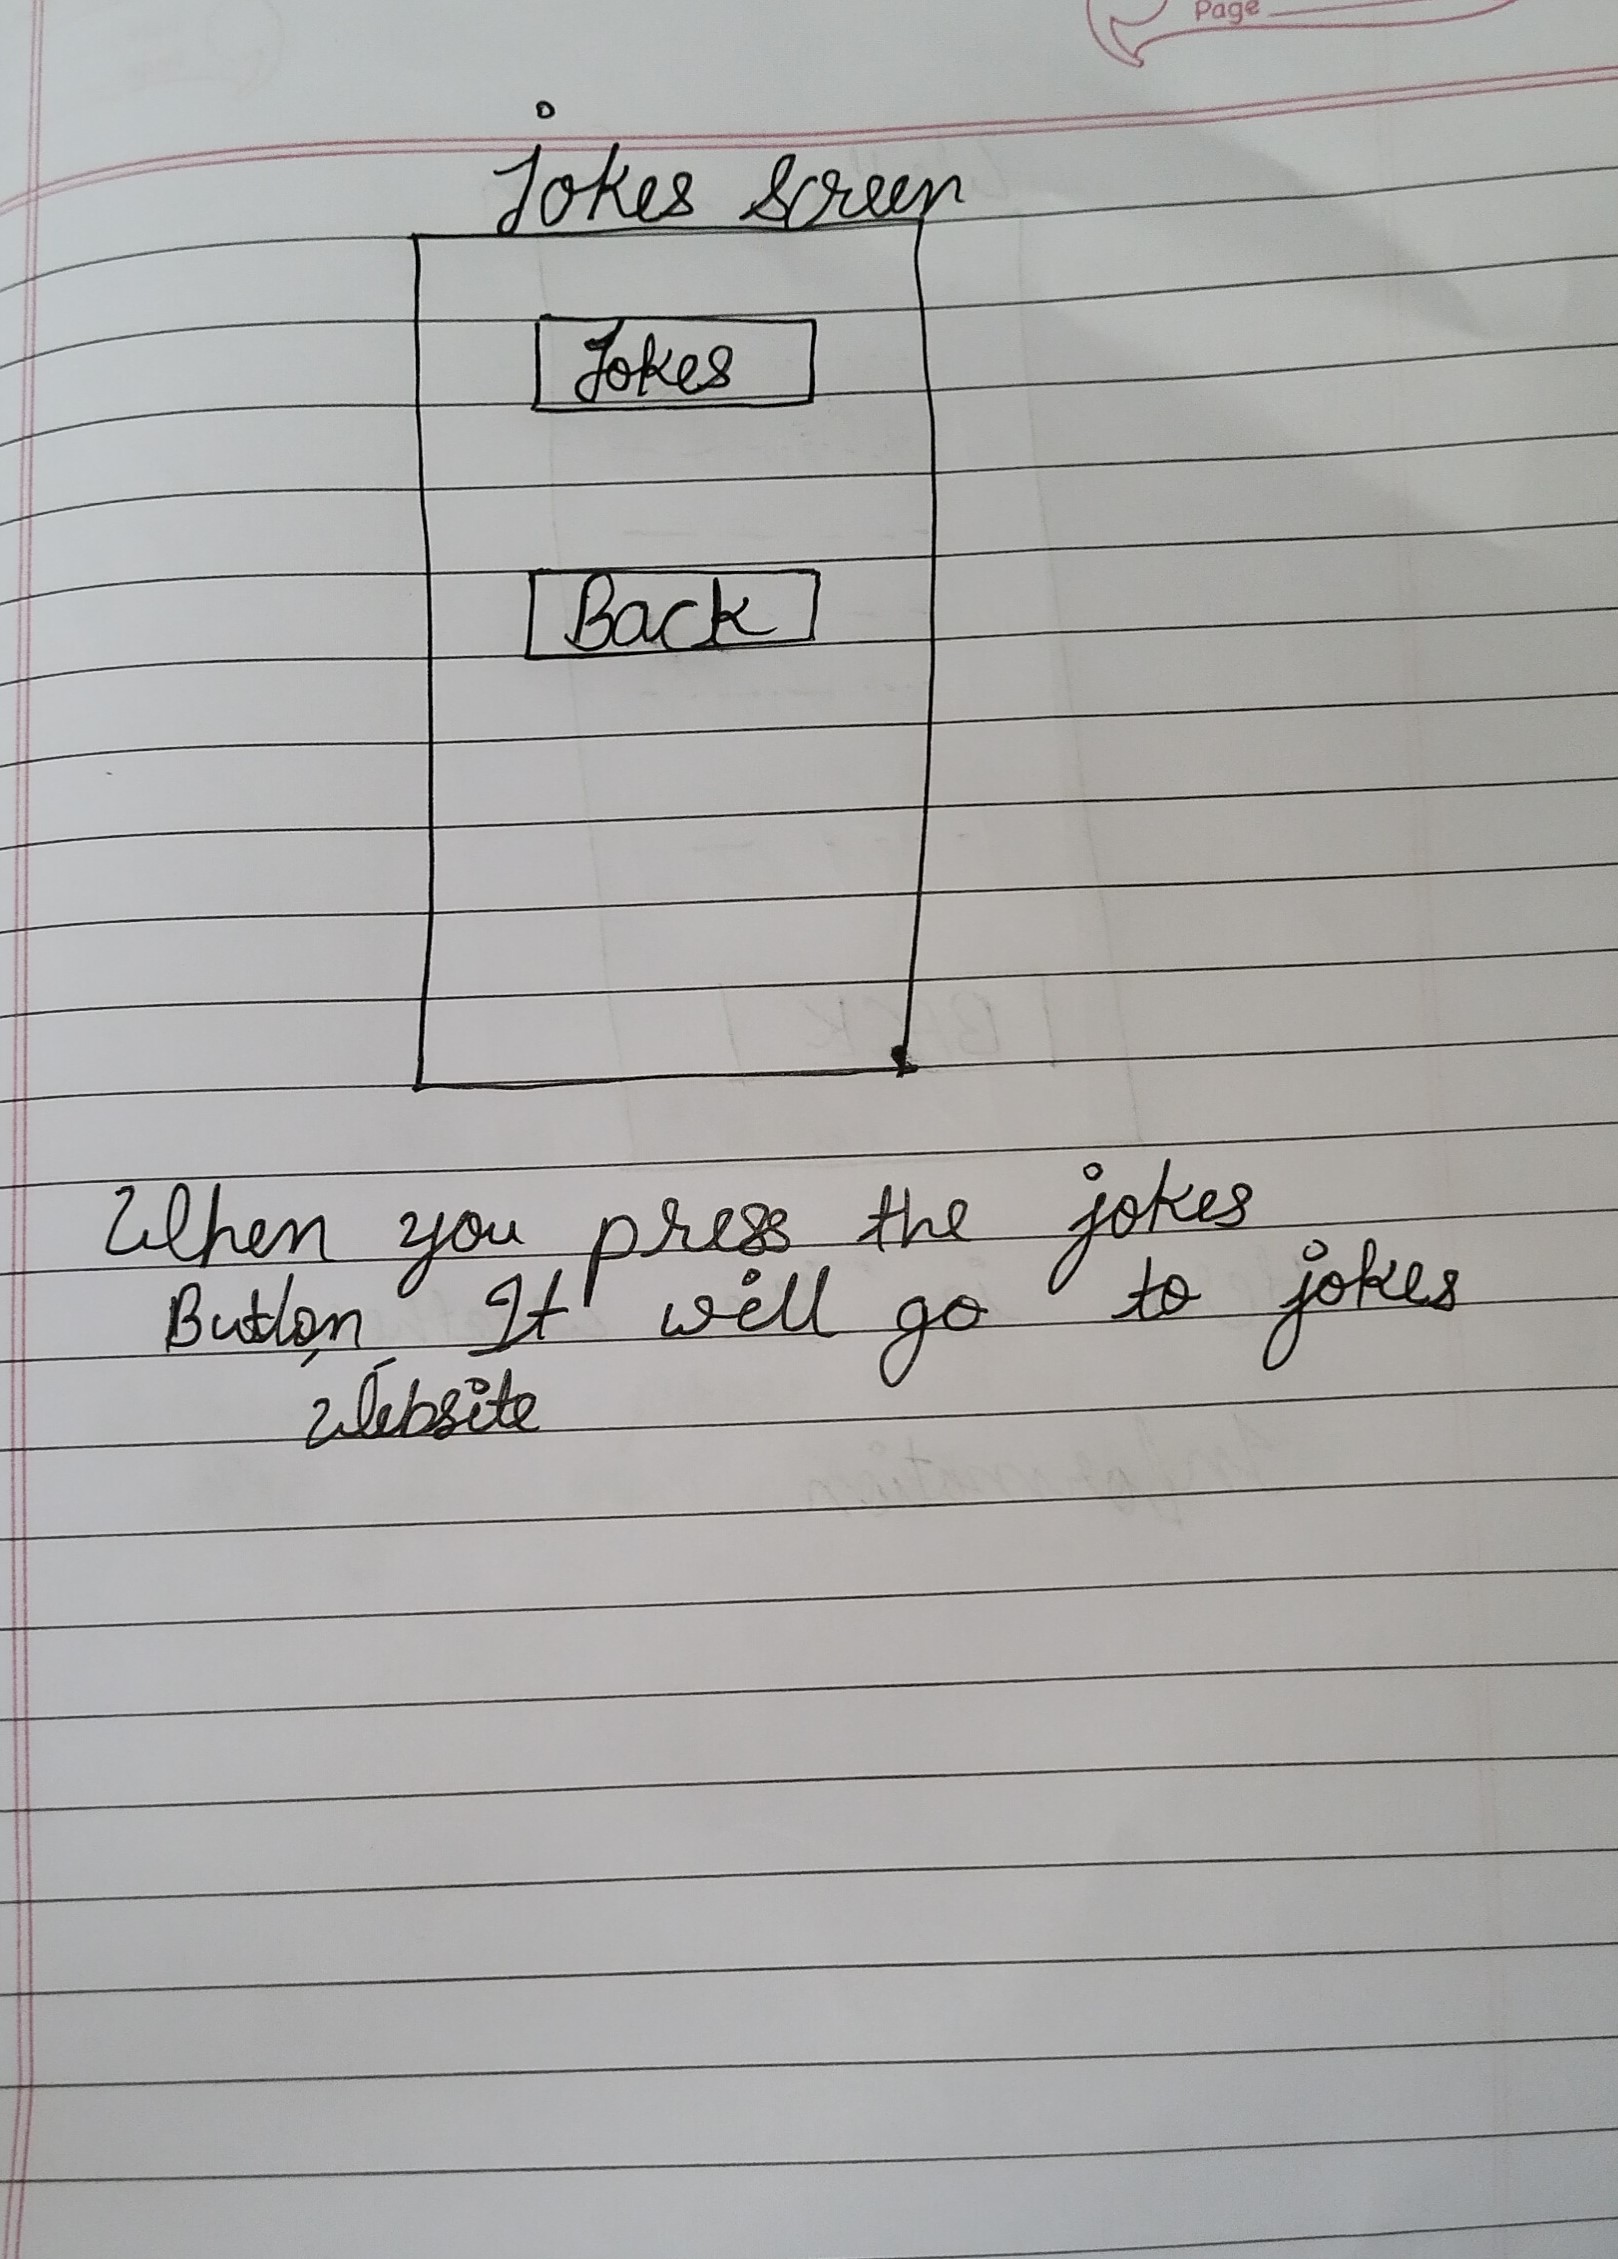 Page
Jokes Screen
Jokes
Back
When you press the jokes
Button, It will go to jokes
Website